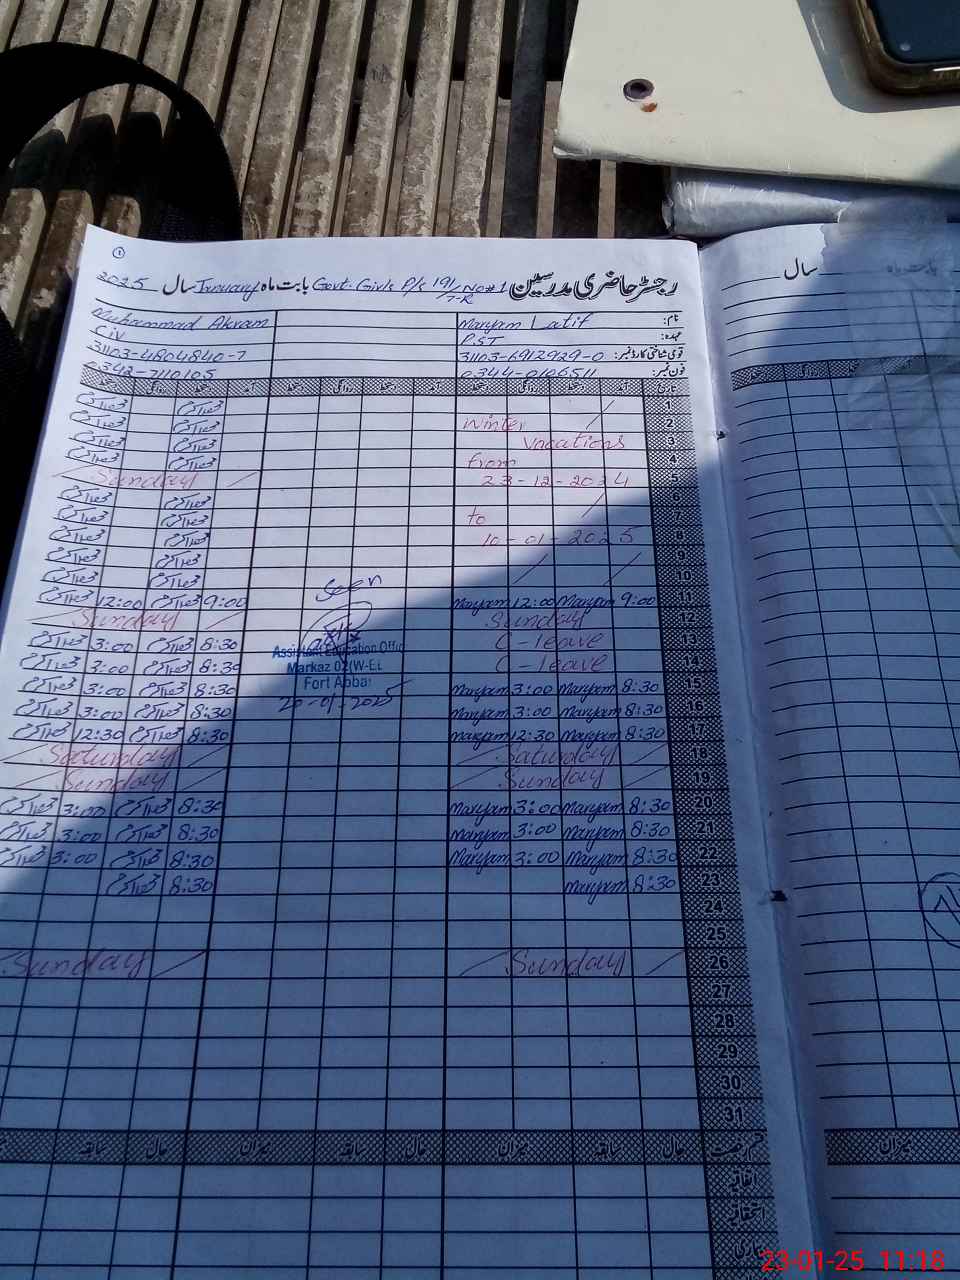 رجسٹر حاضری مدرسین Govt. Girls P/S 191/7-R No#1 بابت ماہ January سال 2025
نام: Maryam Latif Muhammad Akram
عہدہ: PST C-IV
قومی شناختی کارڈ نمبر: 31103-6912929-0 31103-4804840-7
فون نمبر: 0344-0106511 0342-7110105
تاریخ آمد دستخط روانگی دستخط آمد دستخط روانگی دستخط آمد دستخط روانگی دستخط
1 محمد اکرم محمد اکرم
2 Winter محمد اکرم محمد اکرم
3 vacations محمد اکرم محمد اکرم
4 from محمد اکرم محمد اکرم
5 23-12-2024 Sunday
6 محمد اکرم محمد اکرم
7 to محمد اکرم محمد اکرم
8 10-01-2025 محمد اکرم محمد اکرم
9 محمد اکرم محمد اکرم
10 محمد اکرم محمد اکرم
11 9:00 Maryam 12:00 Maryam 9:00 محمد اکرم 12:00 محمد اکرم
12 Sunday Sunday
13 C-leave 8:30 محمد اکرم 3:00 محمد اکرم
14 C-leave 8:30 محمد اکرم 3:00 محمد اکرم
15 8:30 Maryam 3:00 Maryam 8:30 محمد اکرم 3:00 محمد اکرم
16 8:30 Maryam 3:00 Maryam 8:30 محمد اکرم 3:00 محمد اکرم
17 8:30 Maryam 12:30 Maryam 8:30 محمد اکرم 12:30 محمد اکرم
18 Saturday Saturday
19 Sunday Sunday
20 8:30 Maryam 3:00 Maryam 8:30 محمد اکرم 3:00 محمد اکرم
21 8:30 Maryam 3:00 Maryam 8:30 محمد اکرم 3:00 محمد اکرم
22 8:30 Maryam 3:00 Maryam 8:30 محمد اکرم 3:00 محمد اکرم
23 8:30 Maryam 8:30 محمد اکرم
24
25
26 Sunday Sunday
27
28
29
30
31
Seen
Assistant Education Offic
Markaz 02(W-EE
Fort Abbas
20-01-2025
قسم رخصت حال سابقہ میزان حال سابقہ میزان حال سابقہ
اتفاقیہ
استحقاقیہ
بیماری
1
سال
بابت ماہ
میزان
23-01-25 11:18